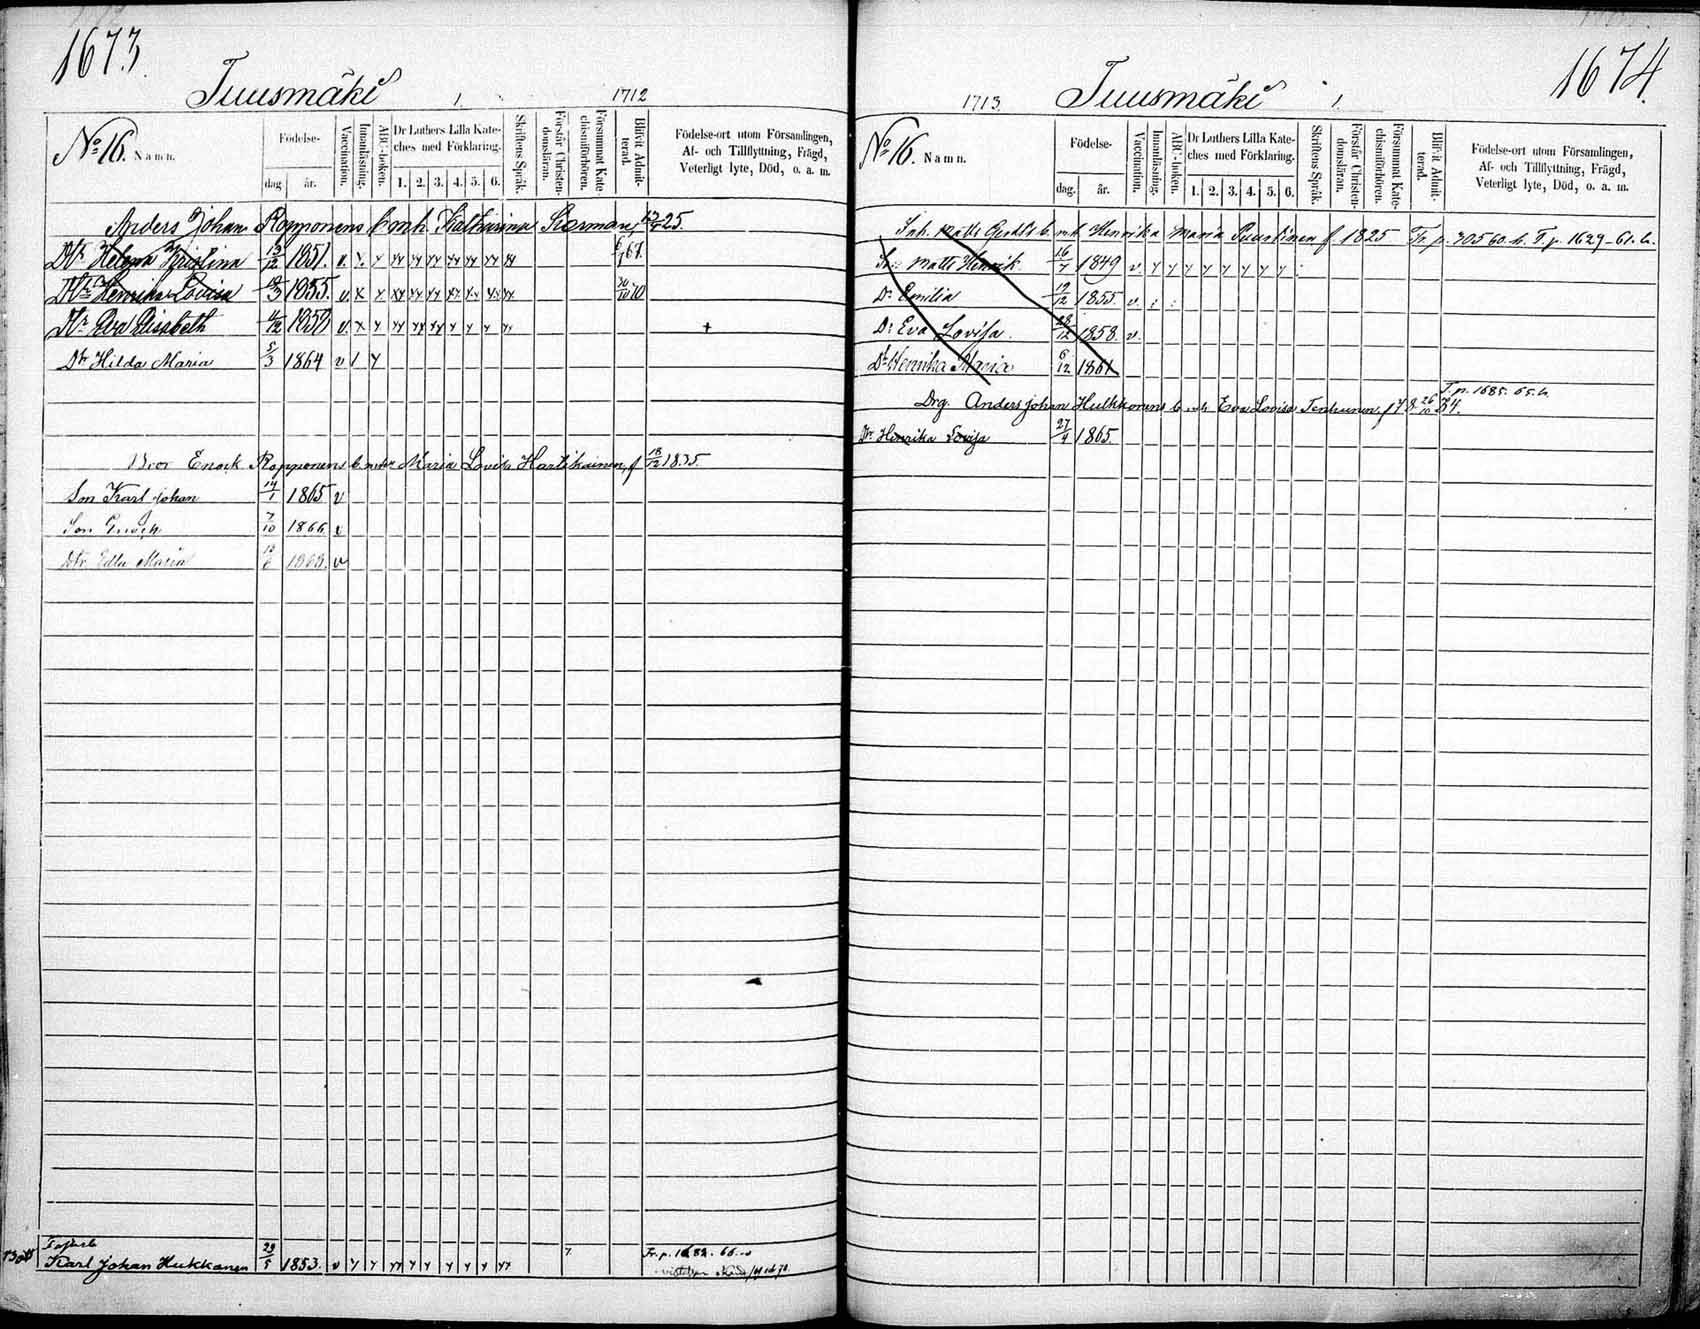 1673
Tuusmäki 1. 1712
No 16. Namn. Födelse- dag år. Vaccination. Innanläsning. ABC-boken. Dr Luthers Lilla Kateches med Förklaring. 1. 2. 3. 4. 5. 6. Skriftens Språk. Förstår Christendomsläran. Försummat Katechismiförhören. Blifvit Admitterad. Födelse-ort utom Församlingen, Af- och Tillflyttning, Frägd, Veterligt lyte, Död, o. a. m.
Anders Johan Ropponens E mh. Katharina Kosmanen 25.
Dtr Helena Kristina 13/12 1851. v. 67.
Dtr Henrika Lovisa 1855. v. 70
Dtr Eva Elisabeth 4/12 1858 v. +
Dtr Hilda Maria 5/3 1864 v
Bror Enock Ropponens E Maria Lovisa Hartikainen f 13/12 1835.
Son Karl Johan 14/1 1865 v
Son Enock 7/10 1866
Dtr Edla Maria v
Karl Johan Hukkanen 29/5 1853. v 7. Fr. p. 1682. 66.
1674.
1713. Tuusmäki 1.
No 16. Namn. Födelse- dag. år. Vaccination. Innanläsning. ABC-boken. Dr Luthers Lilla Kateches med Förklaring. 1. 2. 3. 4. 5. 6. Skriftens Språk. Förstår Christendomsläran. Försummat Katechismiförhören. Blifvit Admitterad. Födelse-ort utom Församlingen, Af- och Tillflyttning, Frägd, Veterligt lyte, Död, o. a. m.
Inh. Matts Henrika Maria Puustinen f 1825 Fr. p. 305 60. T. p. 1629-61.
Matts Henrik 16/7 1849 v.
Dr Emilia 19/12 1855. v.
Dr Eva Lovisa. 28/12 1858. v.
Dr Henrika Maria 6/12 1861
T. p. 1685. 65.
Drg. Anders Johan Hukkonens E mh Eva Lovisa Tenhunen f 26/10 34.
Dtr Henrika Lovisa 27/4 1865.